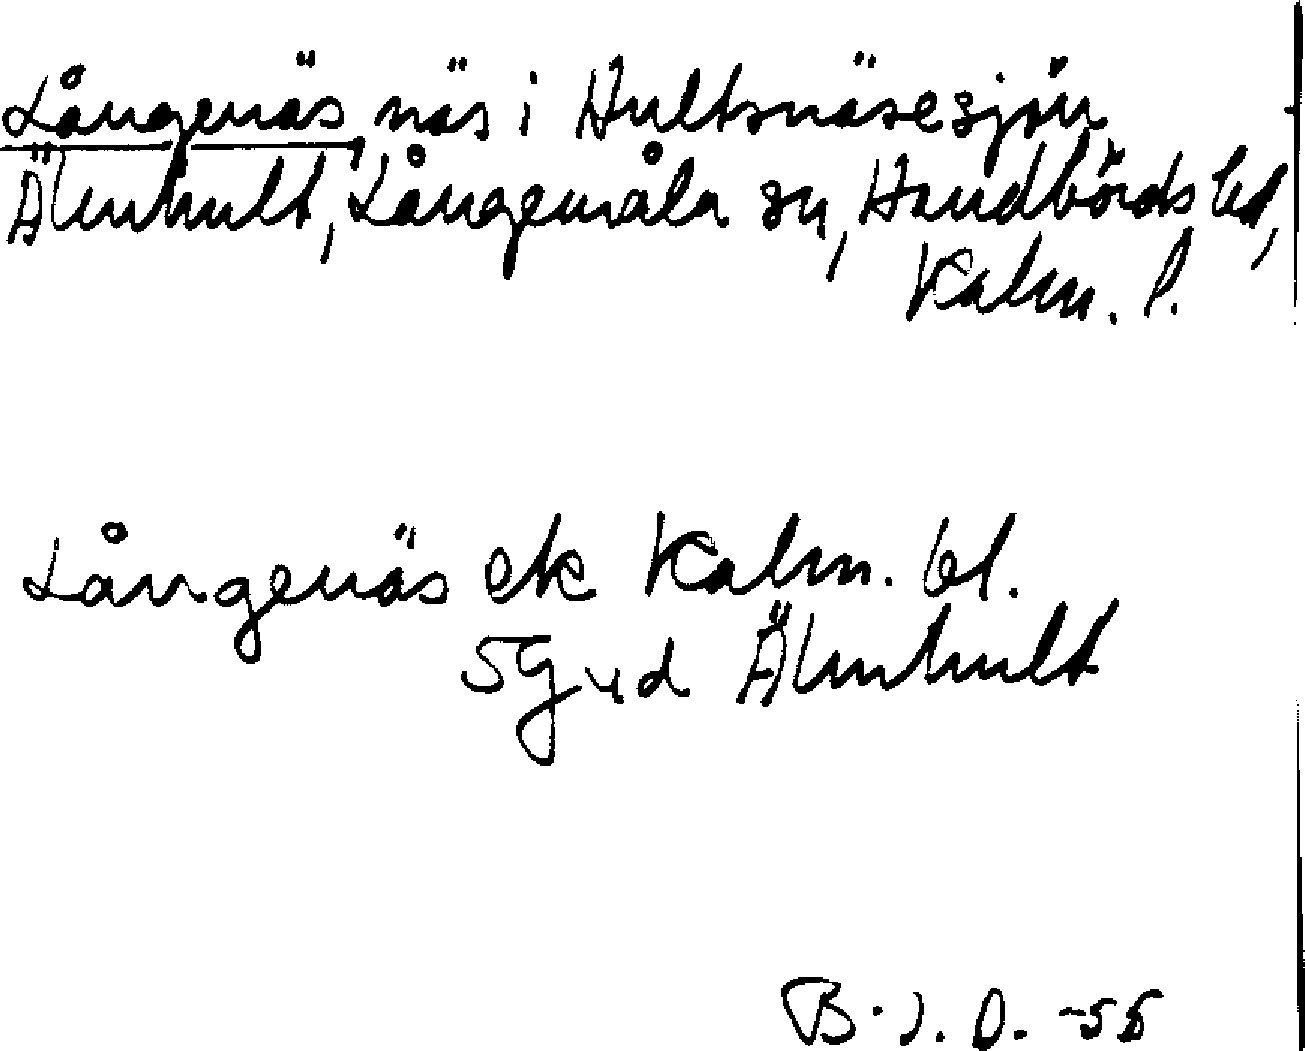 Långenäs, näs i Hultsnäsesjön
Älmhult, Långemåla sn, Handbörds hd,
Kalm. l.
Långenäs ek Kalm. bl.
5G4d Älmhult
B.J.O. -55